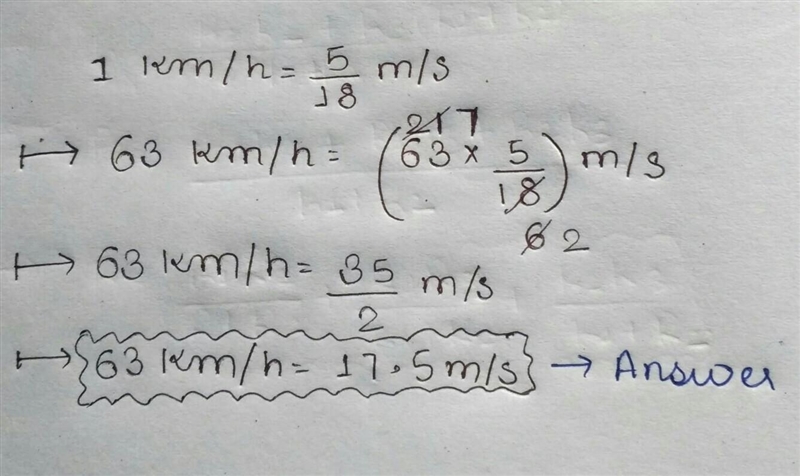 1 km/h = 5/18 m/s
↦ 63 km/h = (63 × 5/18) m/s
21 7
6 2
↦ 63 km/h = 35/2 m/s
↦ 63 km/h = 17.5 m/s → Answer